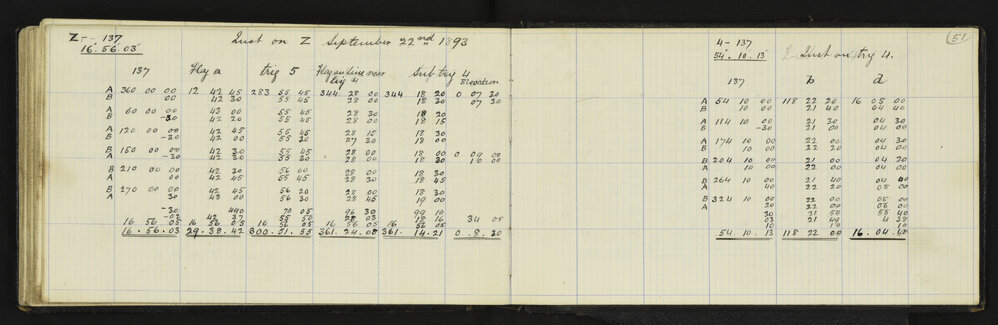 Z - - 137
16. 56. 03
Inst on Z September 22nd 1893
137 Flag a trig 5 Flag on line near trig 4 Sub trig 4 Elevation
A 360 00 00 12 42 45 283 55 45 344 28 00 344 18 20 0 07 30
B 00 42 30 55 45 28 00 18 30 07 30
A 60 00 00 43 00 55 45 28 30 18 20
B -30 42 20 55 45 28 00 18 15
A 120 00 00 42 45 55 45 28 15 18 30
B -30 42 00 55 30 27 30 18 00
B 150 00 00 42 30 55 45 28 00 18 00 0 09 00
A -30 42 30 55 30 28 00 18 30 10 00
B 210 00 00 42 30 56 00 28 00 18 30
A 00 42 45 55 45 28 30 18 45
B 270 00 00 42 45 56 20 28 00 18 30
A 30 43 00 56 30 28 45 19 00
-30 440 70 05 96 30 99 10
-03 42 37 55 50 28 03 18 16 34 00
16 56 05 16 56 05 16 56 05 16 56 05 16 56 05
16. 56. 03 29. 38. 42 300. 51. 55 361. 24. 08 361. 14. 21 0. 8. 30
51
4 - 137
54. 10. 13
Inst on trig 4.
137 b d
A 54 10 00 118 22 20 16 05 00
B 10 00 21 40 04 40
A 114 10 00 21 30 04 30
B -30 21 00 04 00
A 174 10 00 22 00 04 30
B 10 00 22 20 04 00
B 204 10 00 21 00 04 20
A 10 00 22 00 04 00
B 264 10 00 21 40 04 40
A 40 22 20 05 00
B 324 10 00 22 00 05 00
A 20 22 00 06 00
30 21 50 55 40
03 21 49 4 38
10 10 10
54 10 13 118 22 00 16. 04. 48